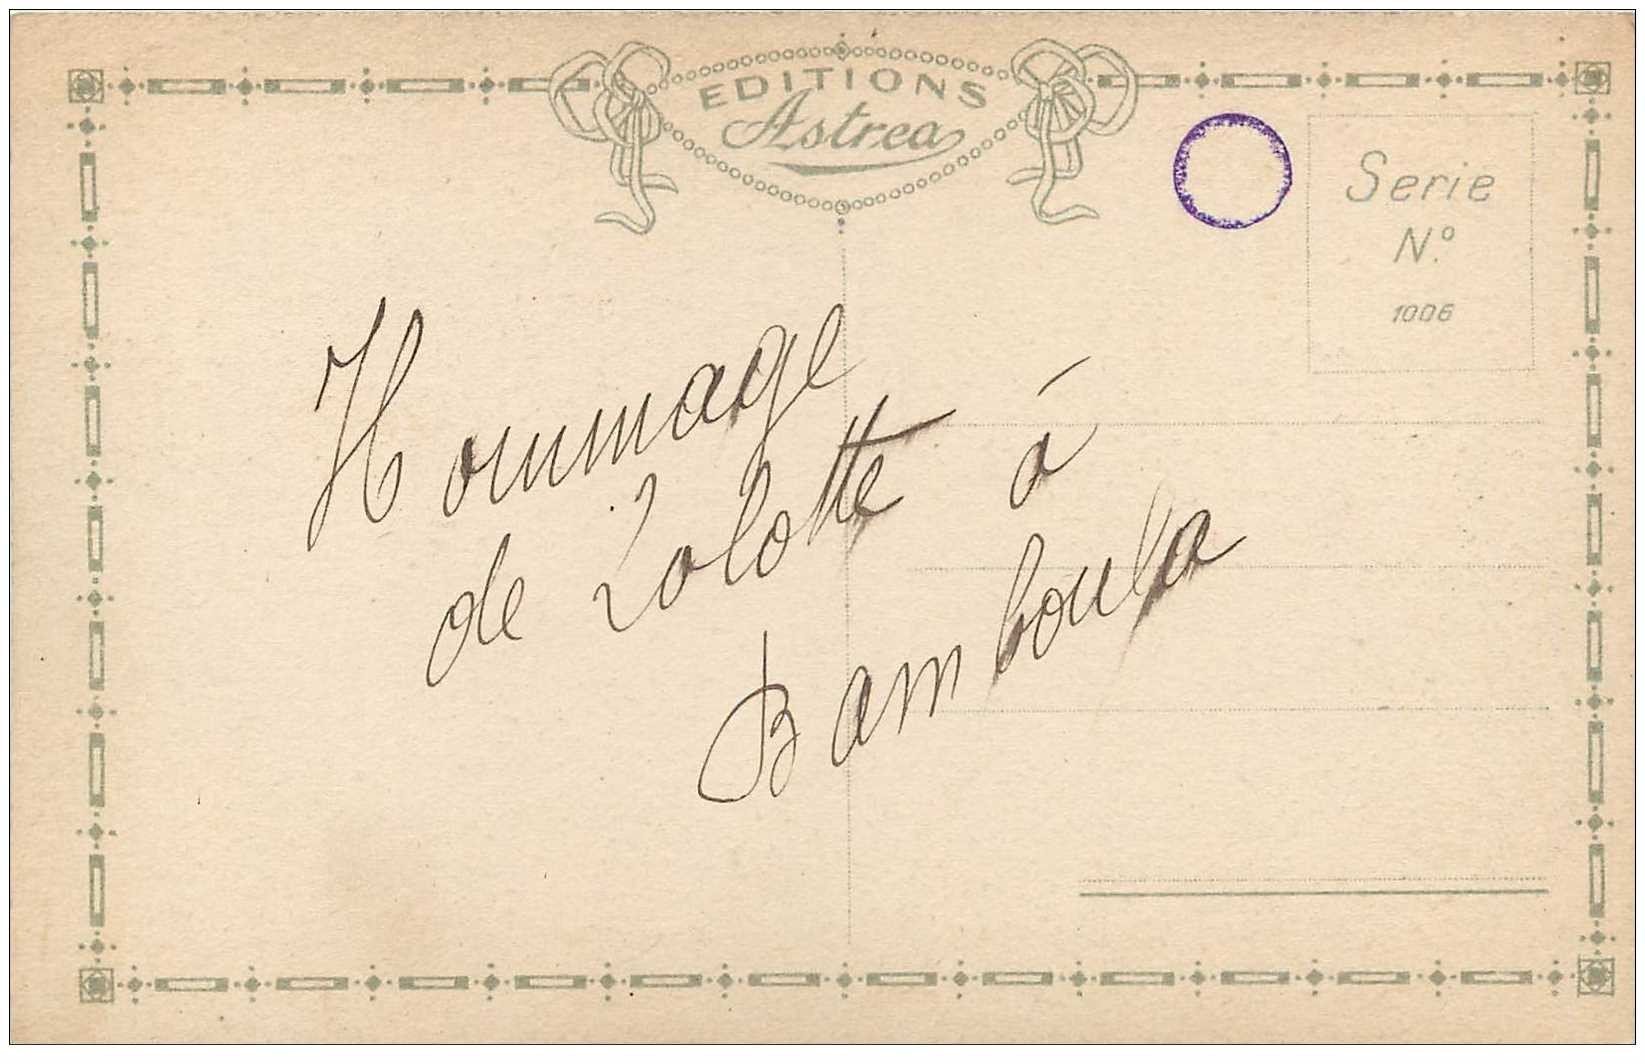 EDITIONS
Astrea
Serie
N.º
1006
Hommage
de Lolotte à
Bamboula